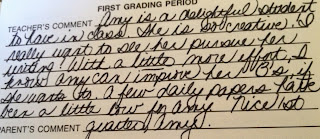 FIRST GRADING PERIOD
TEACHER'S COMMENT Amy is a delightful student
to have in class. She is so creative. I
really want to see her pursue her
writing. With a little more effort, I
know Amy can improve her if
she wants to. A few daily papers have
been a little low for Amy. Nice 1st
PARENT'S COMMENT quarter, Amy.